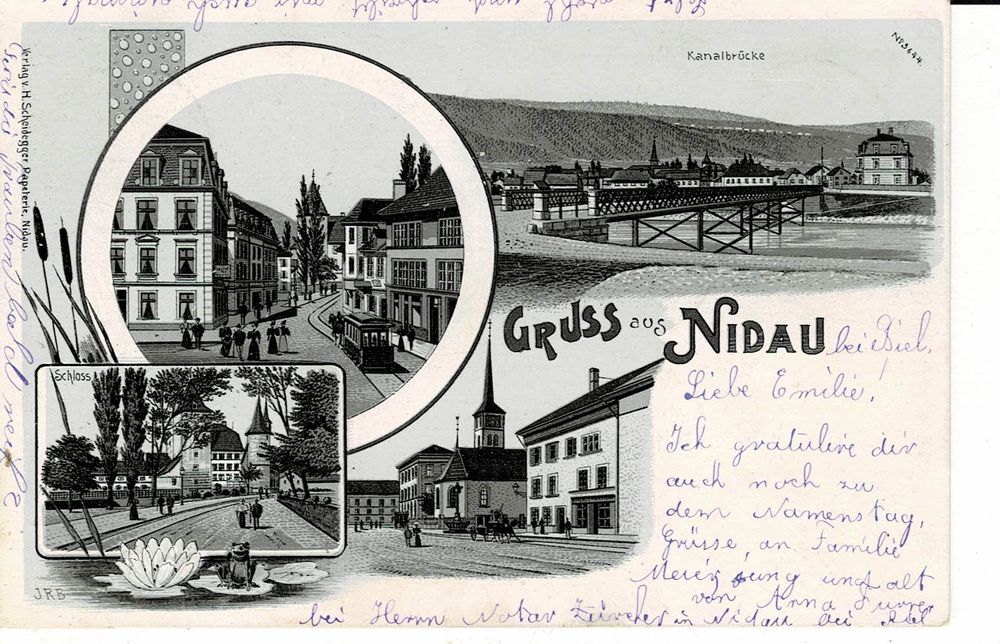 Kanalbrücke
No 3644.
Verlag v. H. Scheidegger, Papeterie, Nidau.
Schloss
GRUSS aus NIDAU
bei Biel,
Liebe Emilie!
Ich gratulire dir
auch noch zu
dem Namenstag,
Grüsse, an Familie
Meier, jung und alt
von Anna
bei Herrn Notar Zürcher in Nidau bei Biel
J.R.B